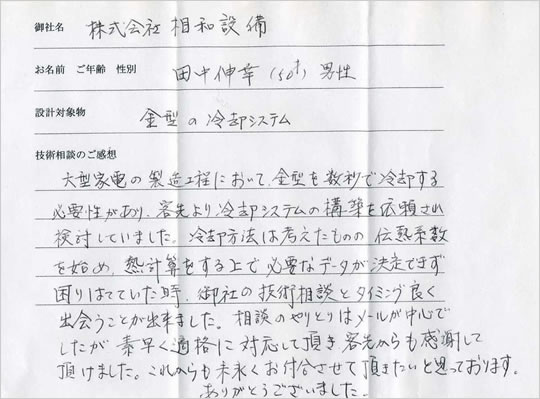 御社名 株式会社 相和設備
お名前 ご年齢 性別 田中伸幸 (50才) 男性
設計対象物 金型の冷却システム
技術相談のご感想
大型家電の製造工程において、金型を数秒で冷却する
必要性があり、客先より冷却システムの構築を依頼され
検討していました。冷却方法は考えたものの伝熱系数
を始め、熱計算をする上で必要なデータが決定できず
困りはてていた時、御社の技術相談とタイミング良く
出会うことが出来ました。相談のやりとりはメールが中心で
したが素早く適格に対応して頂き客先からも感謝して
頂けました。これからも末永くお付合させて頂きたいと思っております。
ありがとうございました。